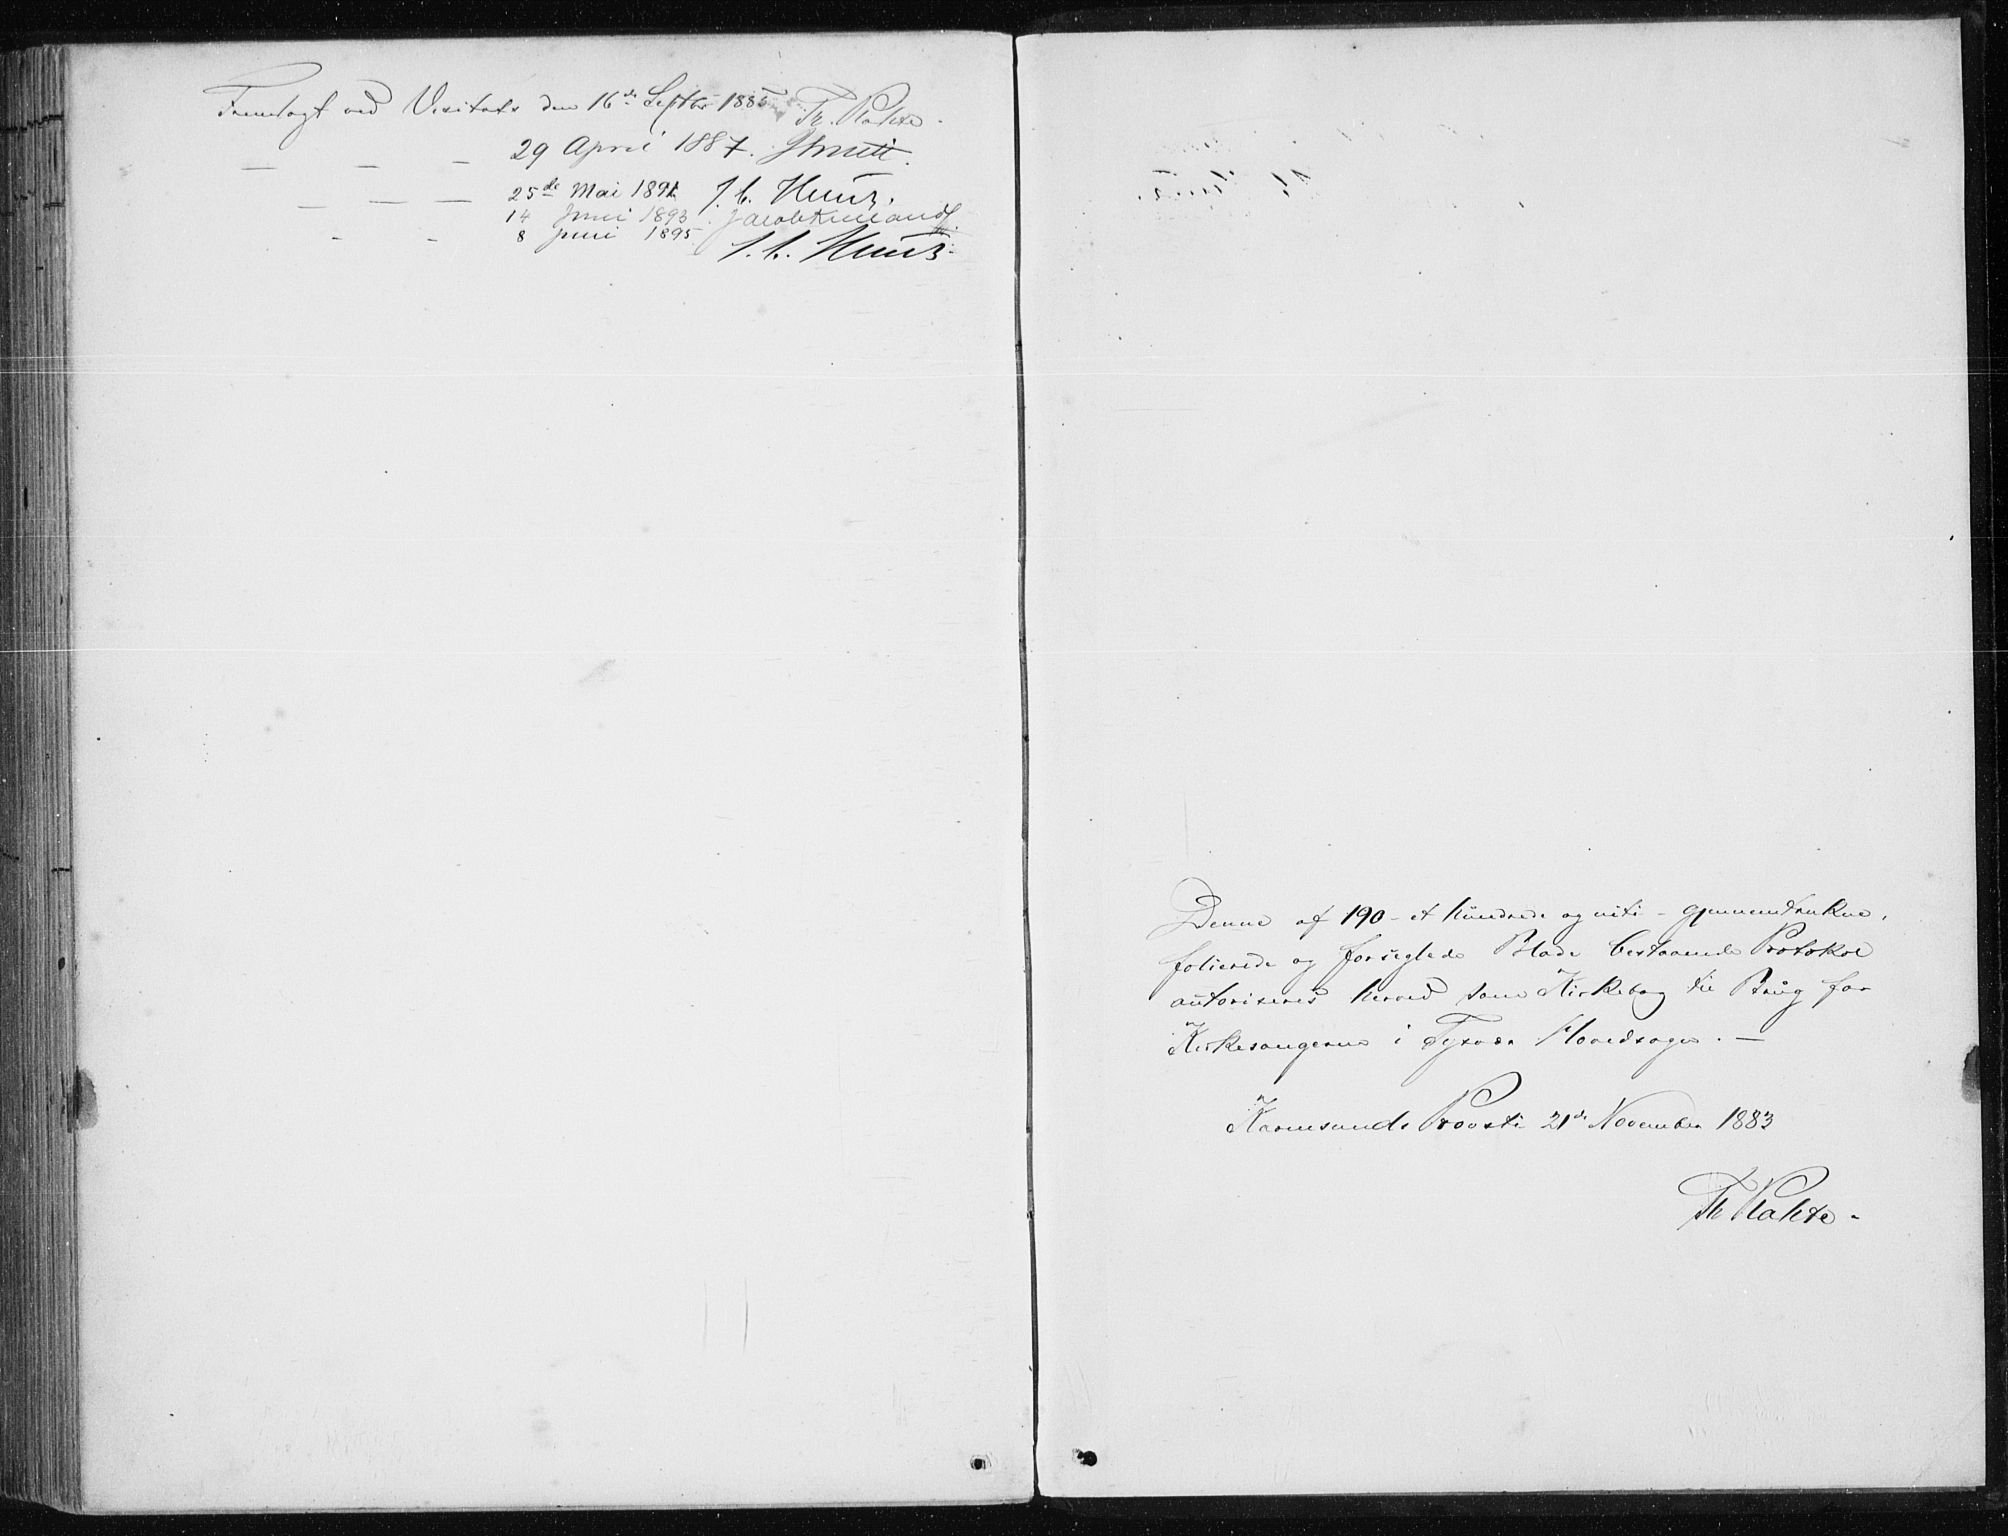 Fremlagt ved Visitats den 16de Septbr 1885 Th. Rakte.
— — — 29 April 1887.
— — — 25de Mai 1891 J. C. Huus.
14 Juni 1893 Jacob Kielland
- - 8 Juni 1895 J. C. Huus.
Denne af 190 - et hundrede og niti - gjennemtrukne,
folierede og forseglede Blade bestaaende Protokol
autoriseres herved som Kirkebog til Brug for
Kirkesangerne i Tysvær Hovedsogn. —
Karmsunds Provsti 21de November 1883
Th Rakte -